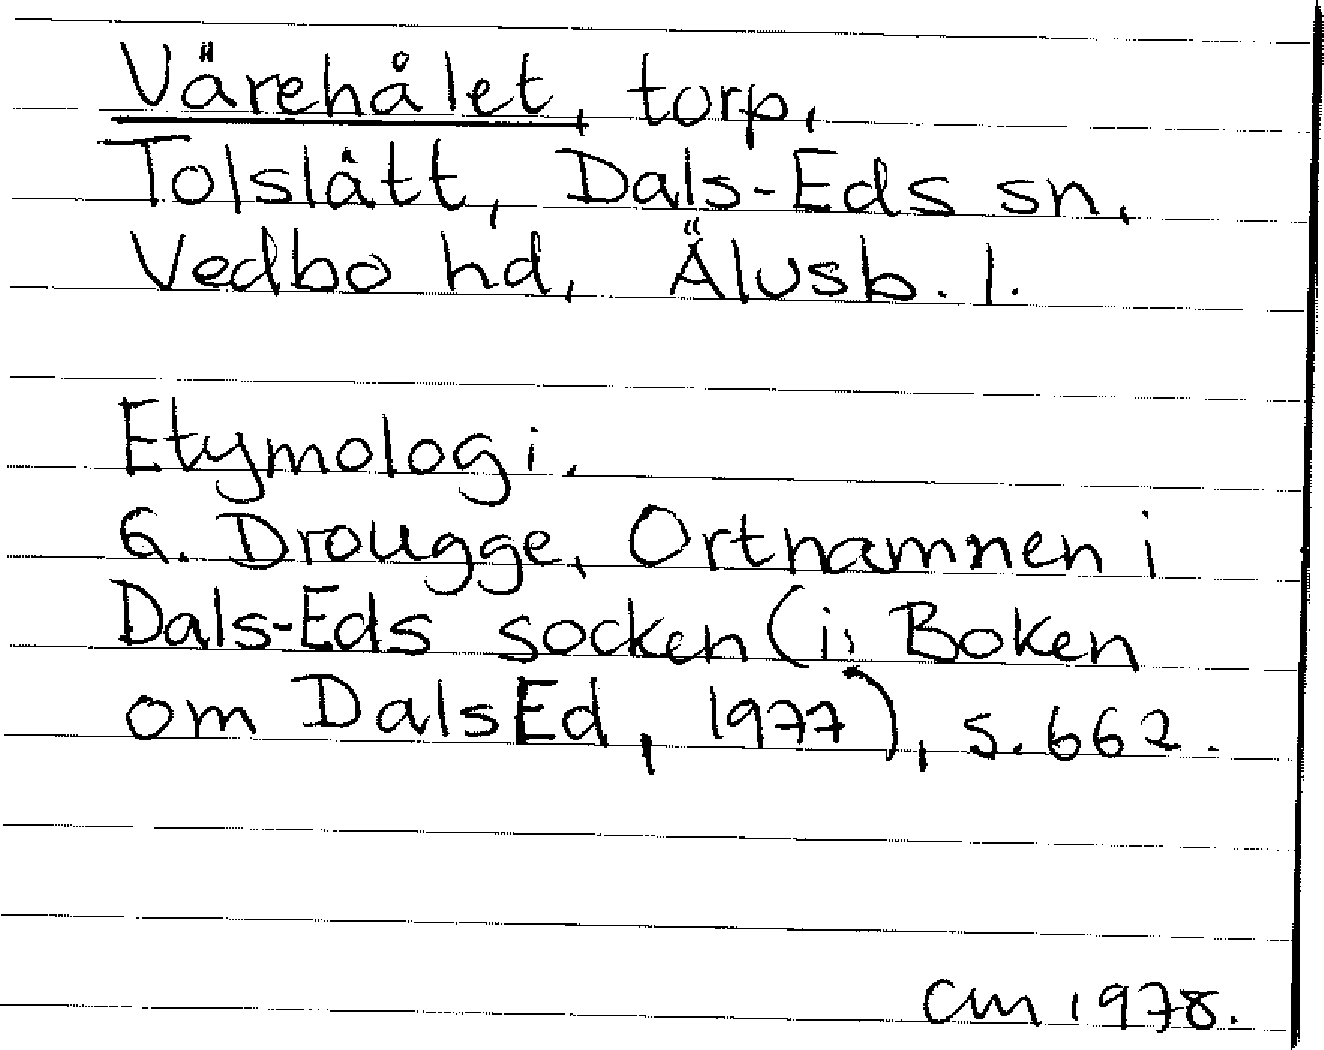 Värehålet, torp,
Tolslått, Dals-Eds sn,
Vedbo hd, Älvsb. l.
Etymologi.
G. Drougge, Ortnamnen i
Dals-Eds socken (i: Boken
om Dals Ed, 1977), s. 662.
CM 1978.